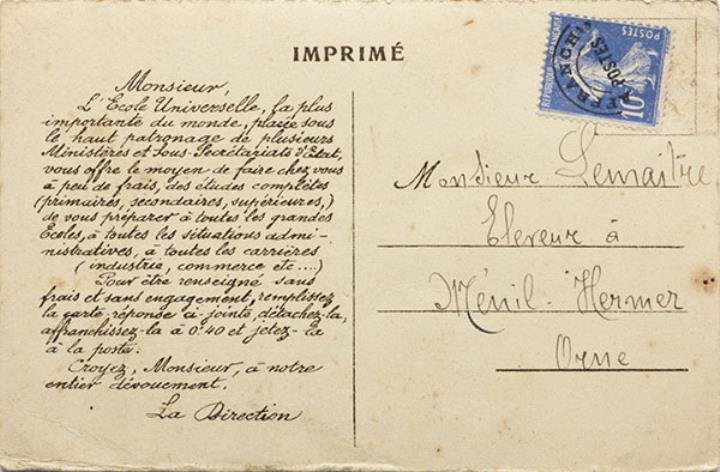 IMPRIMÉ
Monsieur,
L'École Universelle, la plus
importante du monde, placée sous
le haut patronage de plusieurs
Ministères et Sous-Secrétariats d'État,
vous offre le moyen de faire chez vous
à peu de frais, des études complètes
(primaires, secondaires, supérieures,)
de vous préparer à toutes les grandes
Écoles, à toutes les situations admi-
nistratives, à toutes les carrières
(industrie, commerce etc....)
Pour être renseigné sans
frais et sans engagement, remplissez
la carte-réponse ci-jointe, détachez-la,
affranchissez-la à 0f40 et jetez-la
à la poste.
Croyez, Monsieur, à notre
entier dévouement.
La Direction
RÉPUBLIQUE FRANÇAISE
POSTES
10c
AFFRANCHts
POSTES
Monsieur Lemaitre
Eleveur à
Ménil-Hermer
Orne